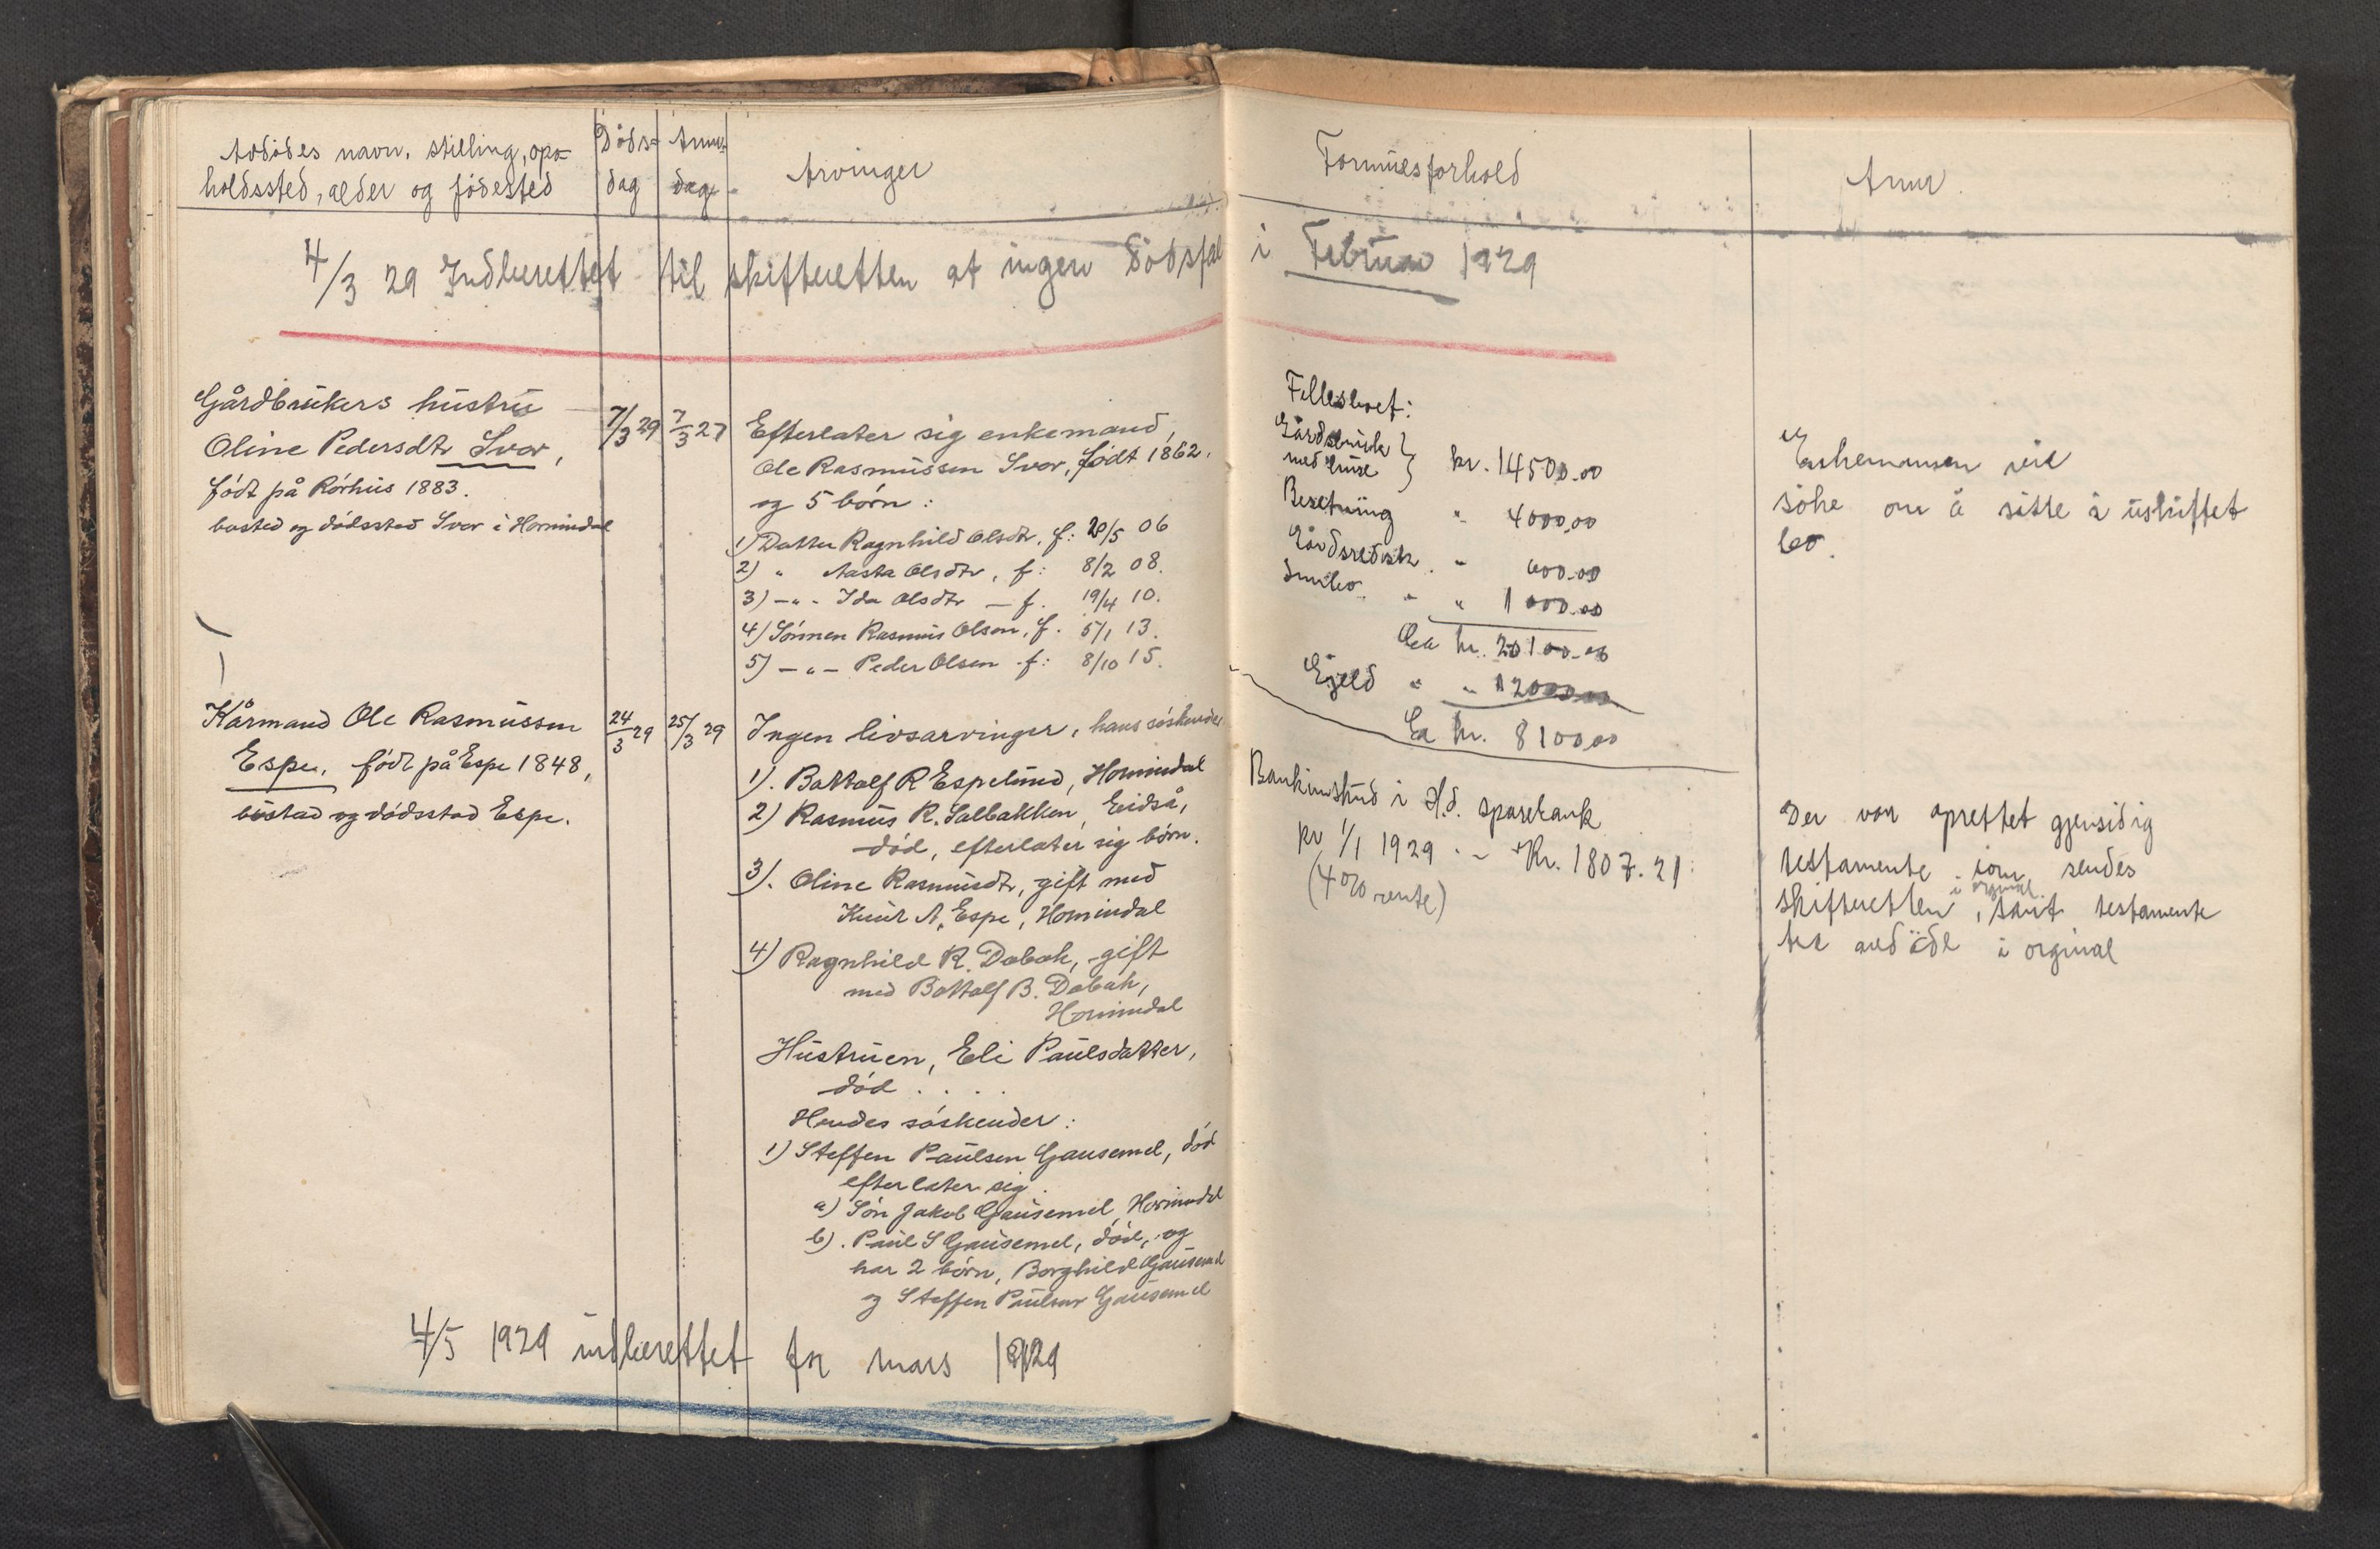 Avdödes navn, stilling, opo-
holdssted, alder og födested
Döds-
dag
Anm.
dag.
Arvinger
4/3 29 Indberettet til skifteretten at ingen Dödsfal
Gårdbrukers hustru
Oline Pedersdtr Svor,
födt på Rörhus 1883.
bosted og dödssted Svor i Hornindal
7/3 29
7/3 27
Efterlater sig enkemand,
Ole Rasmussen Svor, födt 1862,
og 5 börn:
1) Datter Ragnhild Olsdtr, f: 20/5 06
2) " Aasta Olsdtr, f: 8/2 08.
3) -"- Ida Olsdtr - f. 19/4 10.
4) Sönnen Rasmus Olsen, f. 5/1 13.
5) -"- Peder Olsen f: 8/10 15.
Kårmand Ole Rasmussen
Espe, födt på Espe 1848,
bustad og dödsstad Espe.
24/3 29
25/3 29
Ingen livsarvinger, hans söskender
1). Battolf R Espelund, Hornindal
2) Rasmus R. Solbakken, Eidså,
död, efterlater sig börn.
3). Oline Rasmusdtr, gift med
Knut A. Espe, Hornindal
4) Ragnhild R. Dobak, gift
med Battolf B. Dobak,
Hornindal
Hustruen, Eli Paulsdatter,
död . . . .
Hendes söskender:
1) Steffen Paulsen Gausemel, död
efterlater sig.
a) Sön Jakob Gausemel, Hornindal
b). Paul S Gausemel, död, og
har 2 börn, Borghild Gausemel
og Steffen Paulsen Gausemel
4/5 1929 indberettet for mars 1929
Formuesforhold
Anm.
i Februar 1929
Fellesboet:
Gårdsbruk
med huse } kr. 14500.00
Besetning " 4000,00
Gårdsredsk. " 600.00
Innbo " " 1000.00
Ca kr. 20100.00
Gjeld " " 12000.00
Ca kr. 8100.00
Enkemannen vil
söke om å sitte i uskiftet
bo.
Bankinskud i H.d. sparebank
pr 1/1 1929 . - Kr. 1807.21
(4% rente)
Der var oprettet gjensidig
testamente som sendes
i orginal
skifteretten, samt testamente
i orginal